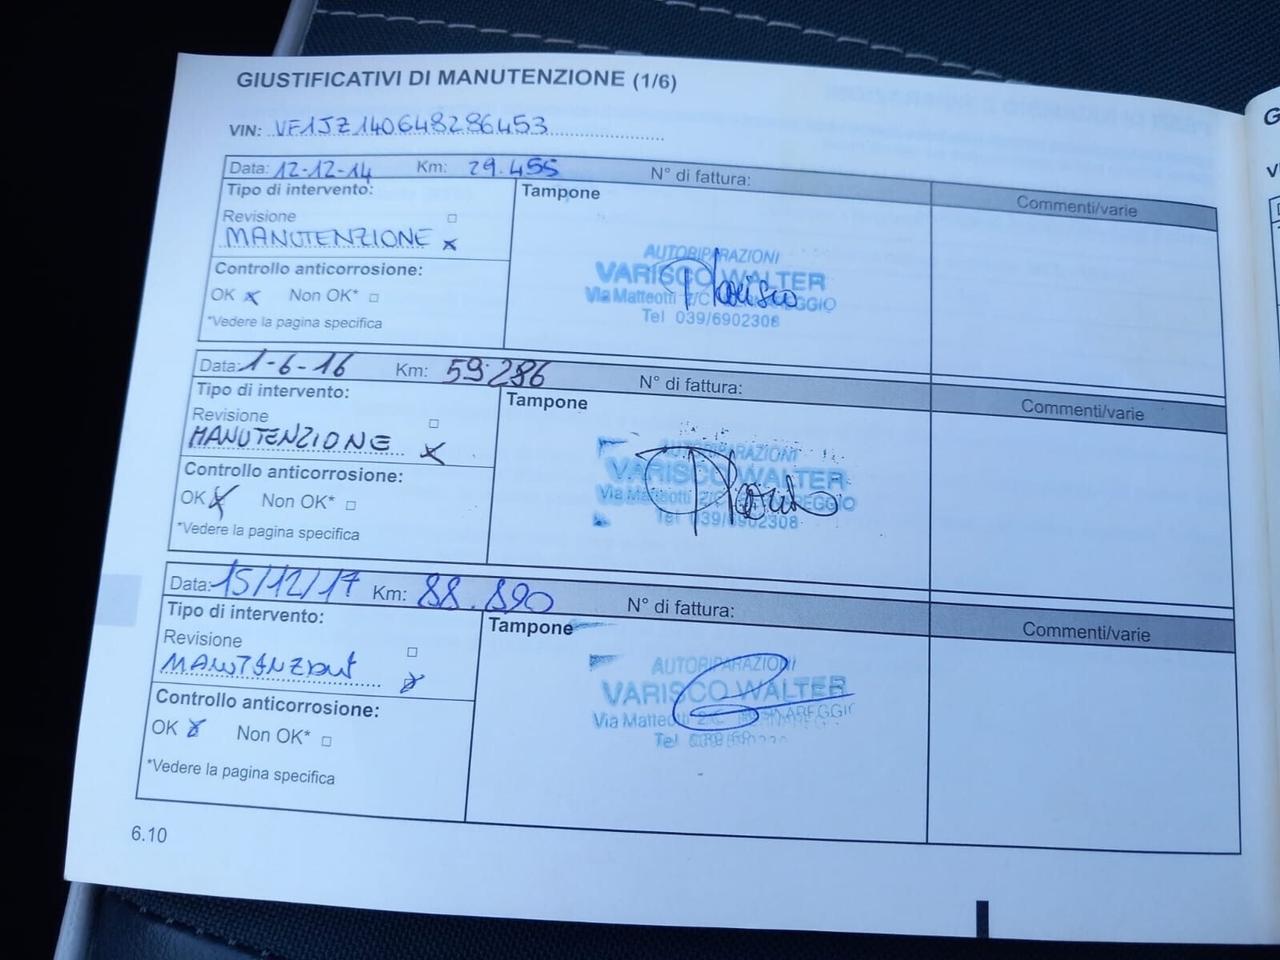 GIUSTIFICATIVI DI MANUTENZIONE (1/6)
VIN: VF1JZ140648286453
Data: 12-12-14 Km: 29.455 N° di fattura:
Commenti/varie
Tipo di intervento:
Tampone
Revisione
MANUTENZIONE
Controllo anticorrosione:
OK Non OK*
*Vedere la pagina specifica
AUTORIPARAZIONI
VARISCO WALTER
Via Matteotti 2/C
Tel 039/6902308
Data: 1-6-16 Km: 59.286 N° di fattura:
Commenti/varie
Tipo di intervento:
Tampone
Revisione
MANUTENZIONE
Controllo anticorrosione:
OK Non OK*
*Vedere la pagina specifica
AUTORIPARAZIONI
VARISCO WALTER
Via Matteotti 2/C
Tel 039/6902308
Data: 15/12/17 Km: 88.890 N° di fattura:
Commenti/varie
Tipo di intervento:
Tampone
Revisione
MANUTENZIONE
Controllo anticorrosione:
OK Non OK*
*Vedere la pagina specifica
AUTORIPARAZIONI
VARISCO WALTER
Via Matteotti 2/C
Tel
6.10